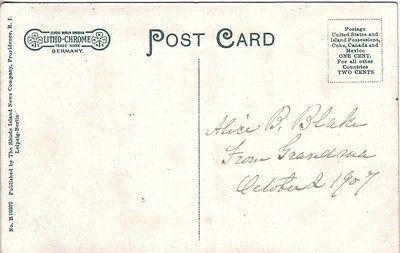 LEIPZIG BERLIN DRESDEN
LITHO-CHROME
TRADE MARK
GERMANY.
POST CARD
Postage
United States and
Island Possessions,
Cuba, Canada and
Mexico
ONE CENT.
For all other
Countries
TWO CENTS
Alice B. Blake
From Grandma
October 2 1907
Published by The Rhode Island News Company, Providence, R. I.
Leipzig-Berlin